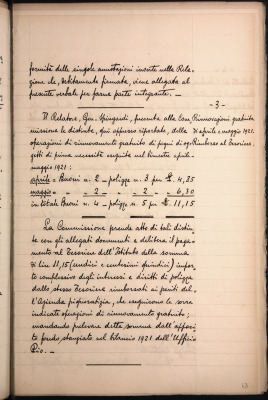 formità delle singole annotazioni inserite nella Rela-
zione che, debitamente firmata, viene allegata al
presente verbale per farne parte integrante. —
- 3 -
Il Relatore, Gen. presenta alla Con. Rinnovazioni gratuite
missione le distinte, qui appresso riportate, delle di aprile e maggio 1921.
operazioni di rinnovamento gratuito di pegni di og- Rimborso al Tesoriere.
getti di prima necessità eseguite nel bimestre aprile-
maggio 1921:
aprile = Buoni n. 2 - polizze n. 3 per £. 4,85
maggio = " - 2 - " - 2 - " - 6,30
in totale Buoni n. 4 - polizze n. 5 per £. 11,15
La Commissione prende atto di tali distin-
te con gli allegati documenti e delibera il paga-
mento al Tesoriere dell'Istituto della somma
di lire 11,15 (undici e centesimi quindici) impor-
to complessivo degli interessi e diritti di polizza
dallo stesso Tesoriere rimborsati ai periti del-
l'Azienda pignoratizia, che eseguirono le sopra
indicate operazioni di rinnovamento gratuito;
mandando prelevare detta somma dall'apposi-
to fondo stanziato nel bilancio 1921 dell'Uffizio
Pio. —